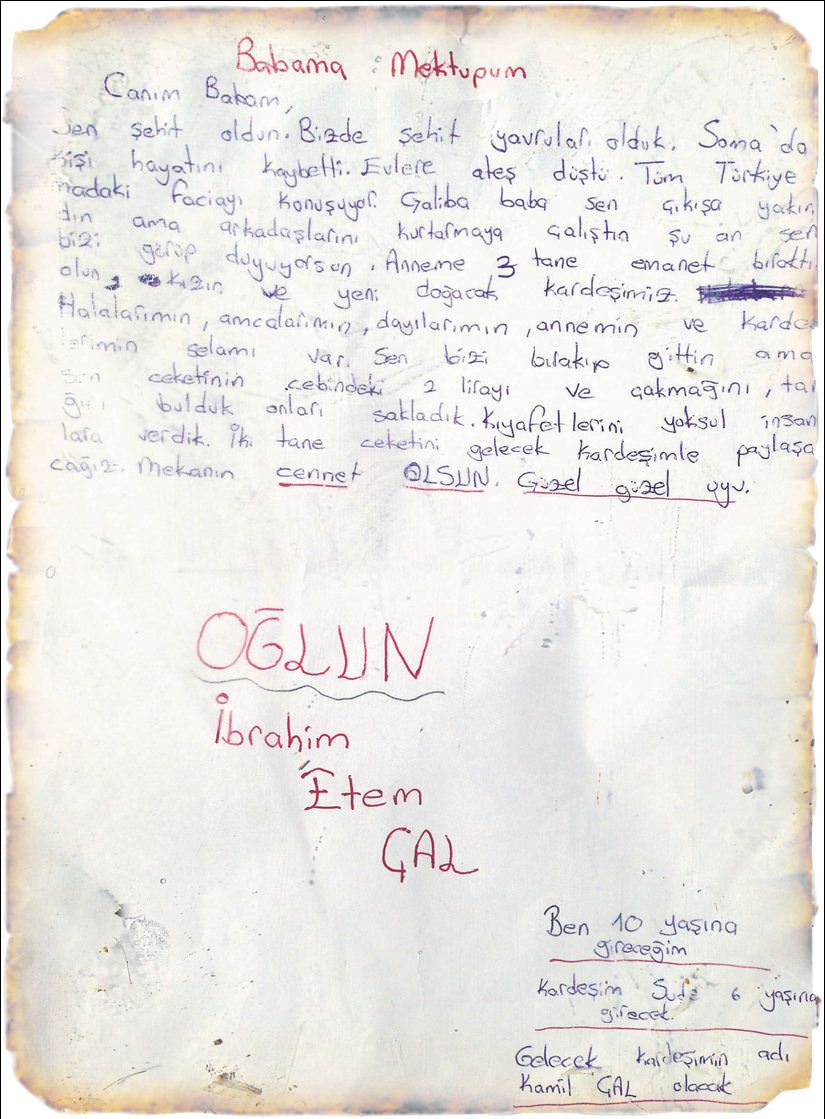 Babama Mektupum
Canım Babam,
Sen şehit oldun. Bizde şehit yavruları olduk. Soma'da
kişi hayatını kaybetti. Evlere ateş düştü. Tüm Türkiye
madaki faciayı konuşuyor. Galiba baba sen çıkışa yakın
dın ama arkadaşlarını kurtarmaya çalıştın şu an sen
bizi görüp duyuyorsun. Anneme 3 tane emanet bıraktı
olun, kızın ve yeni doğacak kardeşimiz.
Halalarımın, amcalarımın, dayılarımın, annemin ve karde
lerimin selamı var. Sen bizi bırakıp gittin ama
sen ceketinin cebindeki 2 lirayı ve çakmağını, ta
ğını bulduk onları sakladık. Kıyafetlerini yoksul insan
lara verdik. İki tane ceketini gelecek kardeşimle paylaşa
cağız. Mekanın cennet OLSUN. Güzel güzel uyu.
OĞLUN
İbrahim
Etem
ÇAL
Ben 10 yaşına
gireceğim
Kardeşim Sude 6 yaşına
girecek.
Gelecek kardeşimin adı
Kamil ÇAL olacak